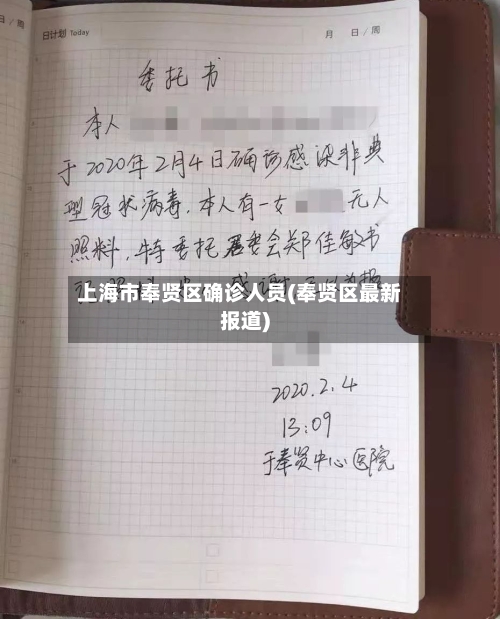 日/周
日计划 Today
月 日/周
委托书
本人
于2020年2月4日确诊感染非典
型冠状病毒,本人有一女 无人
照料,特委托居委会郑佳敏书
上海市奉贤区确诊人员(奉贤区最新
报道)
2020.2.4
13:09
于奉贤中心医院